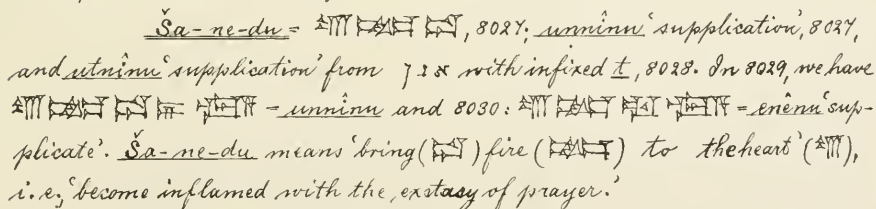 Ša-ne-du = , 8027; unnînu 'supplication', 8027,
and utnînu 'supplication' from אנן with infixed t, 8028. In 8029, we have
= unnînu and 8030: = enênu 'sup-
plicate'. Ša-ne-du means 'bring ( ) fire ( ) to the heart' ( ),
i.e., 'become inflamed with the extasy of prayer.'